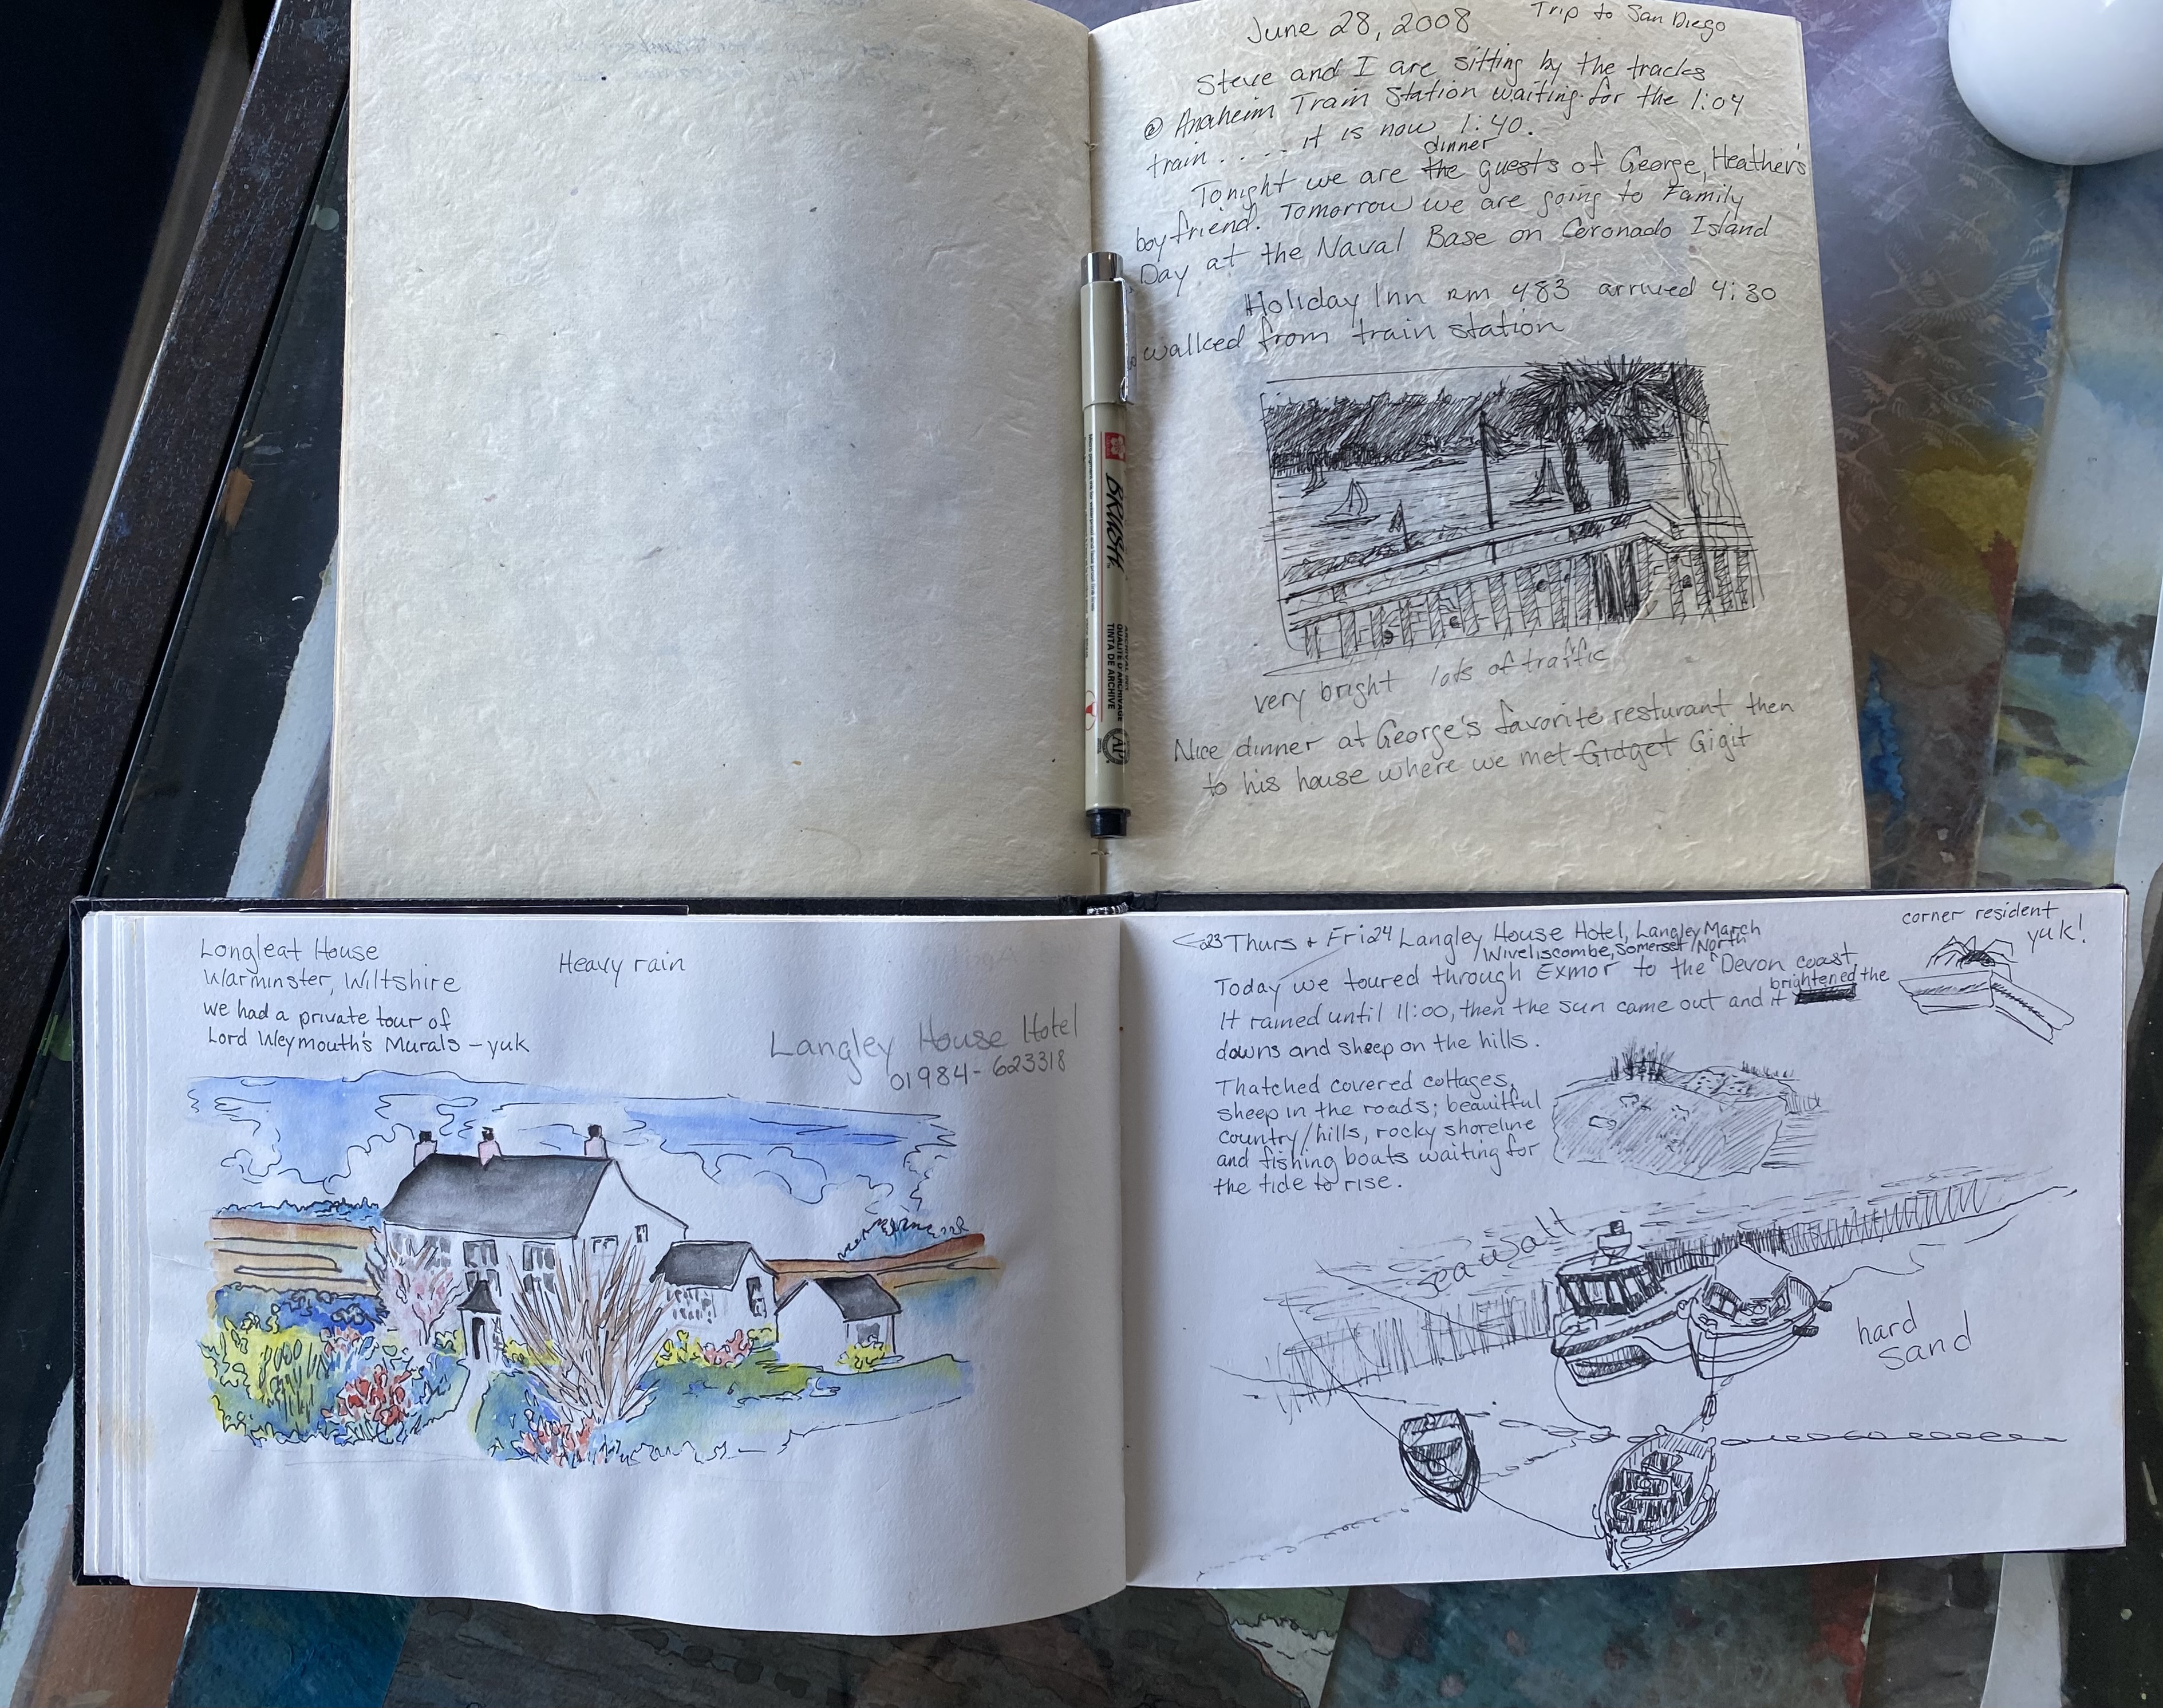 June 28, 2008 Trip to San Diego
Steve and I are sitting by the tracks
@ Anaheim Train Station waiting for the 1:04
train..... it is now 1:40.
dinner
Tonight we are the guests of George, Heather's
boyfriend. Tomorrow we are going to Family
Day at the Naval Base on Coronado Island
Holiday Inn rm 483 arrived 4:30
walked from train station
very bright lots of traffic
Nice dinner at George's favorite resturant then
to his house where we met Gidget Gigit
BRUSH
QUALITÉ D'ARCHIVAGE
TINTA DE ARCHIVE
AP
Longleat House
Warminster, Wiltshire
we had a private tour of
Lord Weymouth's Murals - yuk
Heavy rain
Langley House Hotel
01984-623318
23 Thurs + Fri 24 Langley House Hotel, Langley March
Wiveliscombe, Somerset/North
Today we toured through Exmor to the Devon coast.
brightened the
It rained until 11:00, then the sun came out and it
downs and sheep on the hills.
Thatched covered cottages,
sheep in the roads; beauitful
country/hills, rocky shoreline
and fishing boats waiting for
the tide to rise.
corner resident
yuk!
sea wall
hard
sand